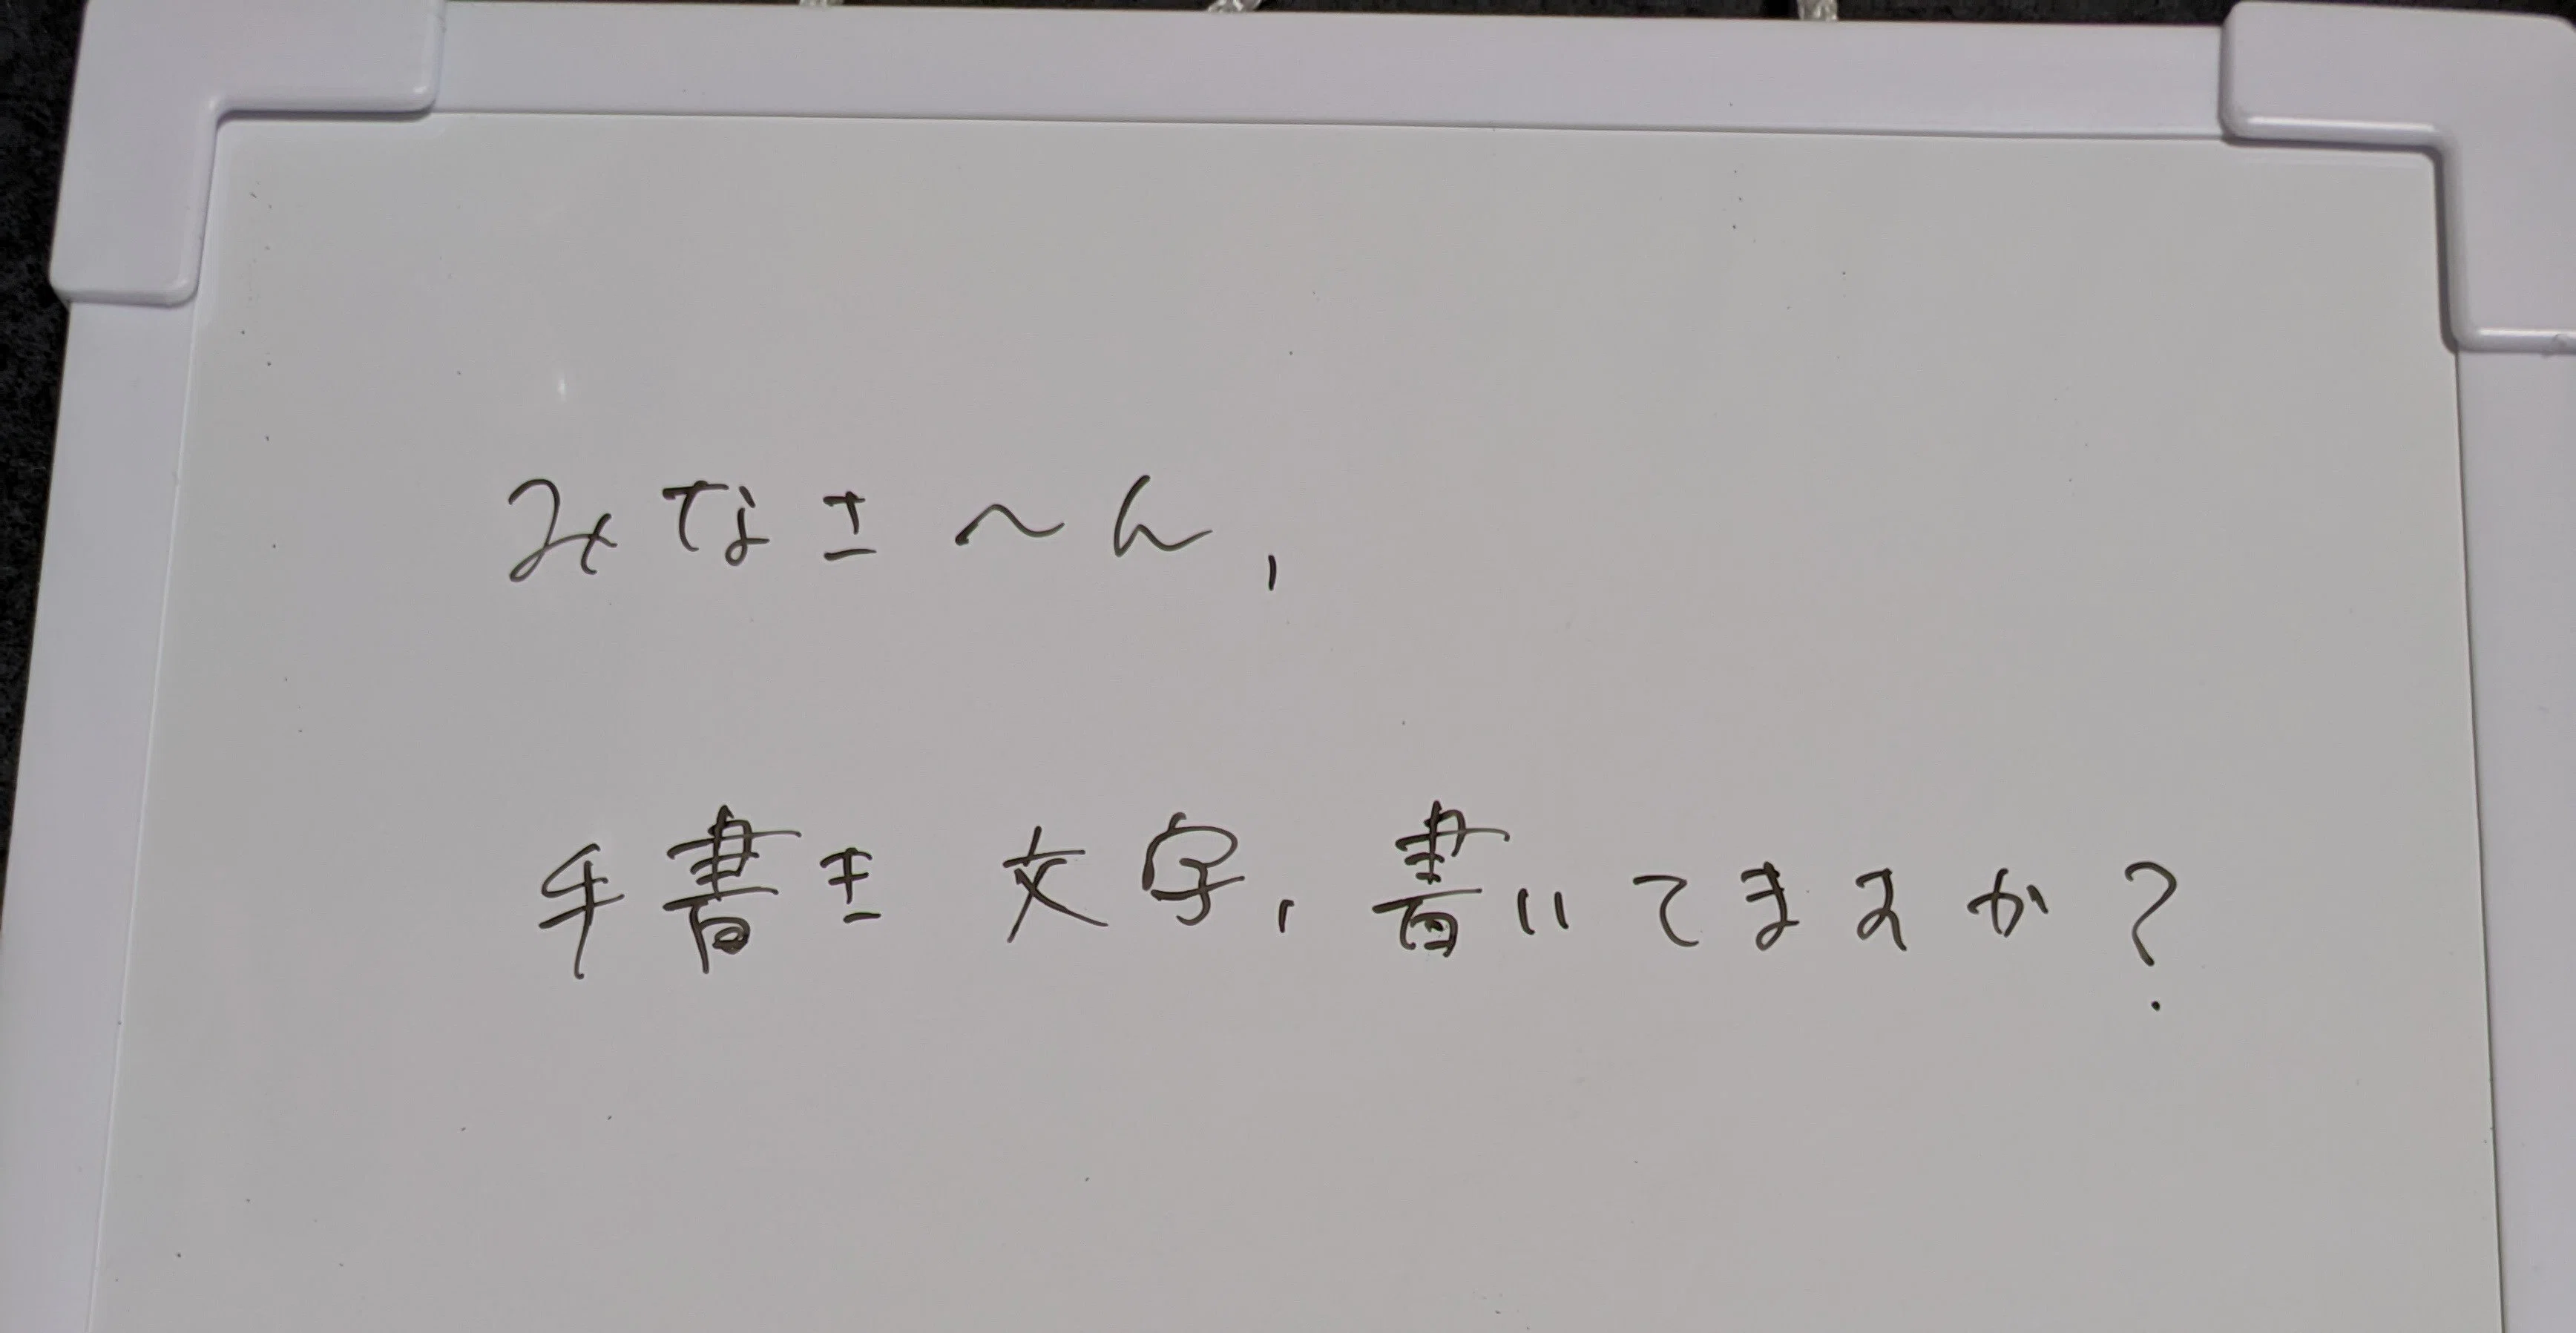 みなさ〜ん,
手書き文字,書いてますか?